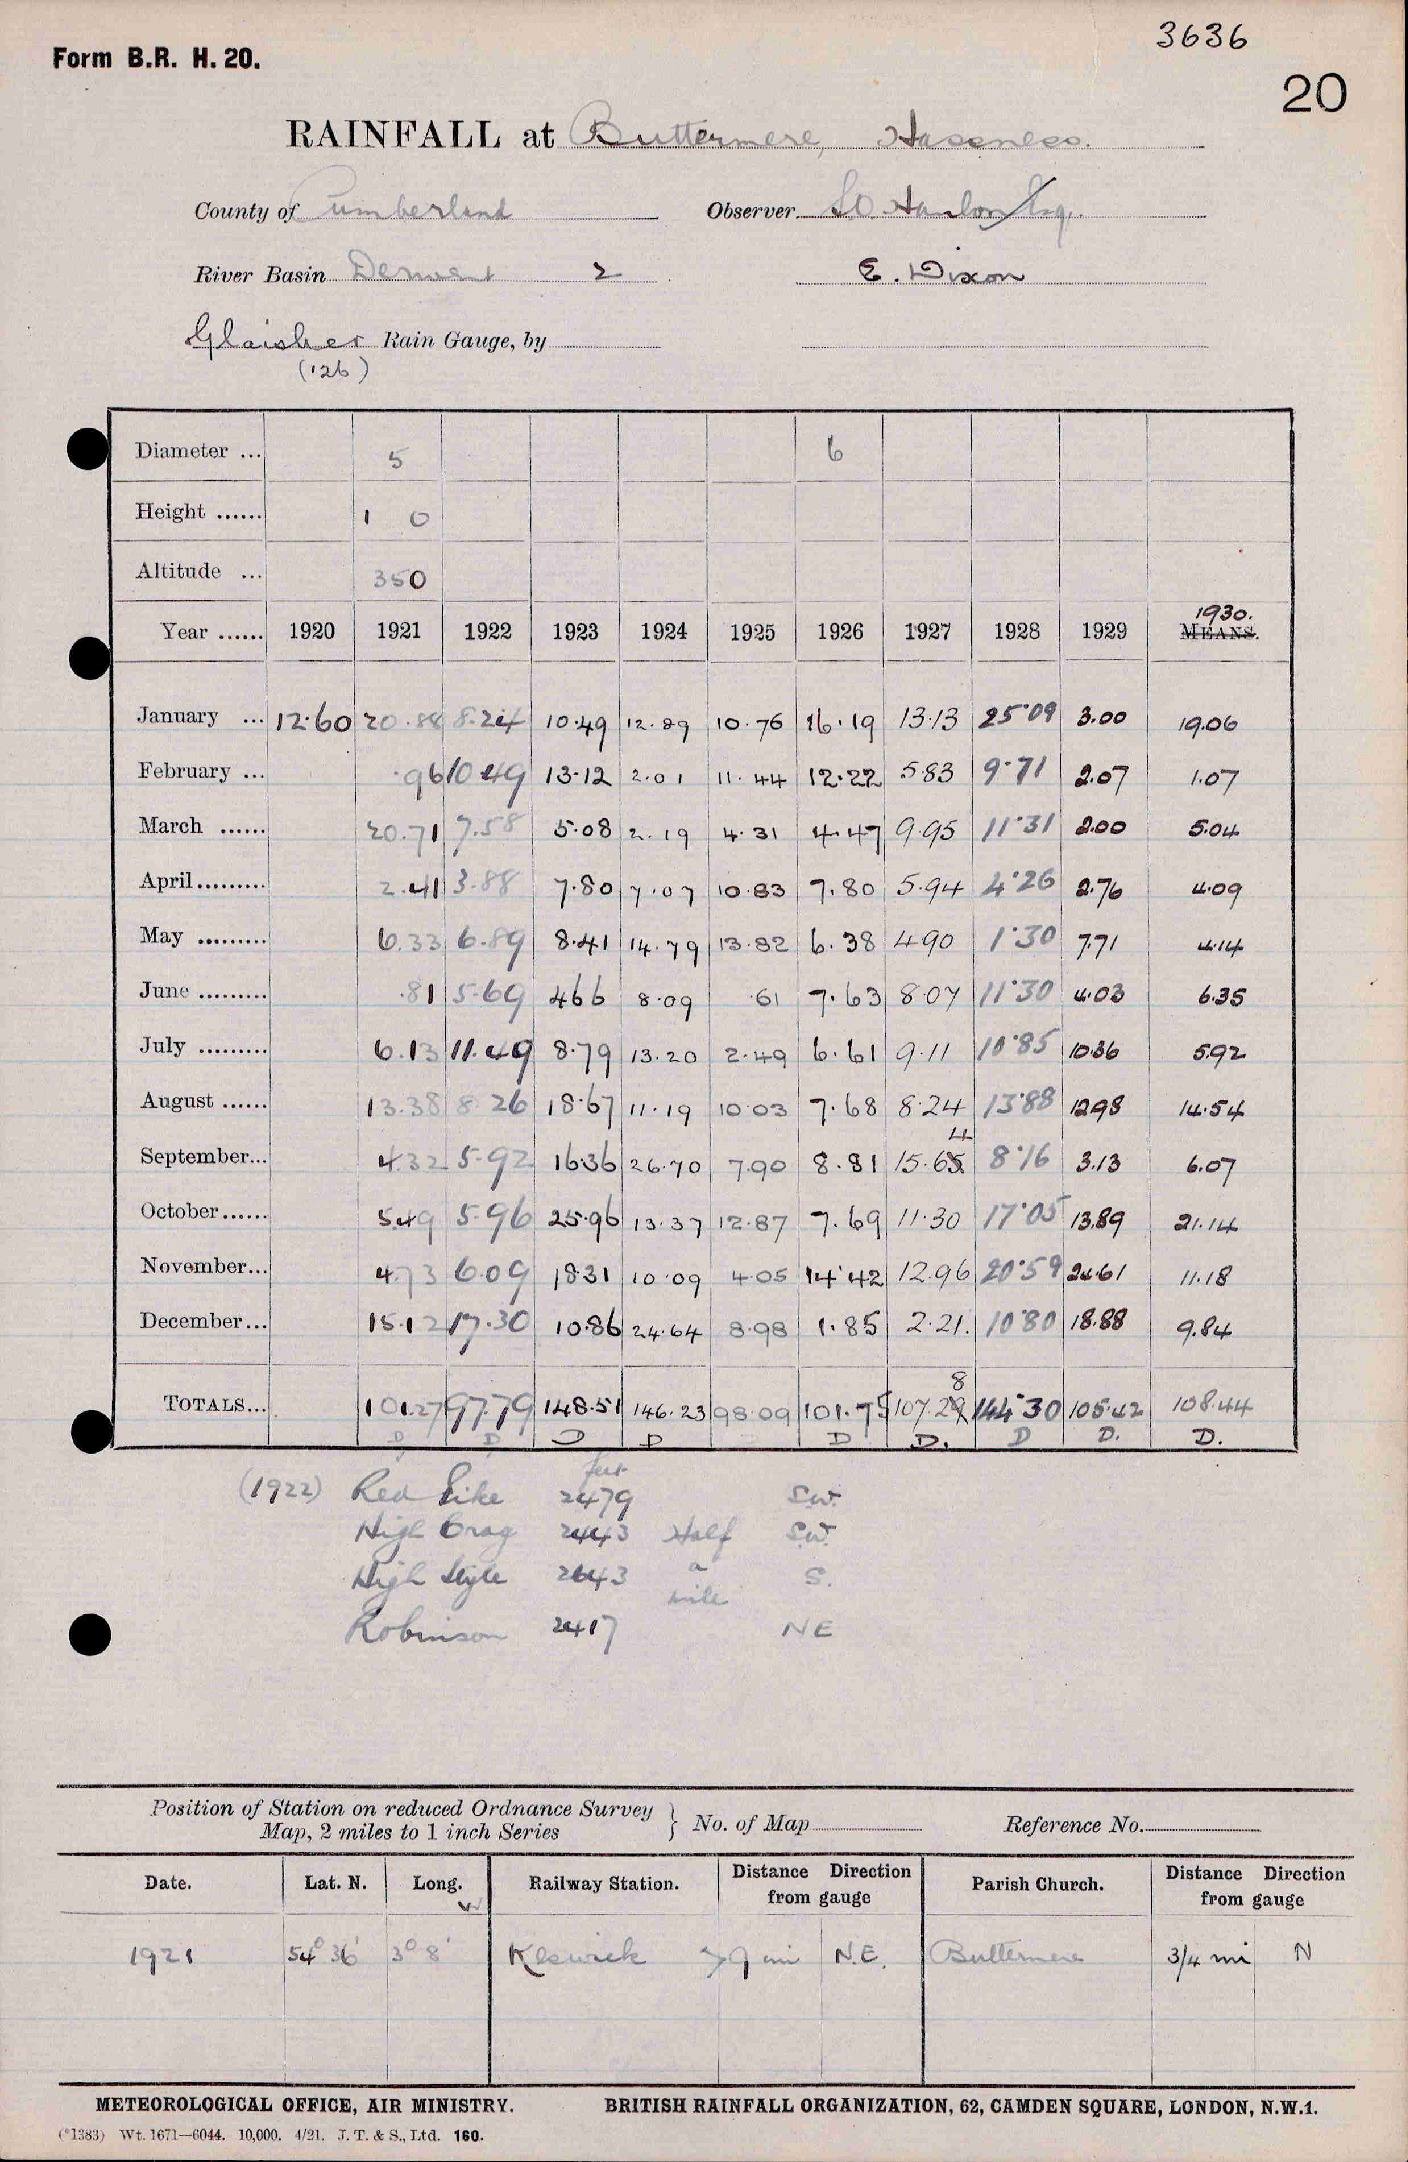 3636
Form B.R. H. 20.
20
RAINFALL at Buttermere, Hassness.
County of Cumberland Observer S.O. Hanlon Esq.
River Basin Derwent 2 E. Dixon
Glaisher Rain Gauge, by
(126)
Diameter ... 5 6
Height ...... 1 0
Altitude ... 350
1930.
Year ...... 1920 1921 1922 1923 1924 1925 1926 1927 1928 1929 MEANS.
January ... 12.60 20.88 8.24 10.49 12.89 10.76 16.19 13.13 25.09 3.00 19.06
February ... .96 10.49 13.12 2.01 11.44 12.22 5.83 9.71 2.07 1.07
March ...... 20.71 7.58 5.08 2.19 4.31 4.47 9.95 11.31 2.00 5.04
April......... 2.41 3.88 7.80 7.07 10.83 7.80 5.94 4.26 2.76 4.09
May ......... 6.33 6.89 8.41 14.79 13.82 6.38 4.90 1.30 7.71 4.14
June ......... .81 5.69 4.66 8.09 .61 7.63 8.07 11.30 4.03 6.35
July ......... 6.13 11.49 8.79 13.20 2.49 6.61 9.11 10.85 10.36 5.92
August ...... 13.38 8.26 18.67 11.19 10.03 7.68 8.24 13.88 12.98 14.54
4
September... 4.32 5.92 16.36 26.70 7.90 8.81 15.65 8.16 3.13 6.07
October...... 5.49 5.96 25.96 13.37 12.87 7.69 11.30 17.05 13.89 21.14
November... 4.73 6.09 18.31 10.09 4.05 14.42 12.96 20.59 24.61 11.18
December... 15.12 17.30 10.86 24.64 8.98 1.85 2.21. 10.80 18.88 9.84
8
TOTALS... 101.27 97.79 148.51 146.23 98.09 101.75 107.29 144.30 105.42 108.44
D D D D D D. D D. D.
feet
(1922) Red Pike 2479 S.W.
High Crag 2443 Half S.W.
High Style 2643 a S.
mile
Robinson 2417 NE
Position of Station on reduced Ordnance Survey
Map, 2 miles to 1 inch Series } No. of Map Reference No.
Date. Lat. N. Long. W Railway Station. Distance Direction from gauge Parish Church. Distance Direction from gauge
1921 54° 36' 3° 8' Keswick >9 mi N.E. Buttermere 3/4 mi N
METEOROLOGICAL OFFICE, AIR MINISTRY. BRITISH RAINFALL ORGANIZATION, 62, CAMDEN SQUARE, LONDON, N.W.1.
(*1383) Wt. 1671—6044. 10,000. 4/21. J. T. & S., Ltd. 160.